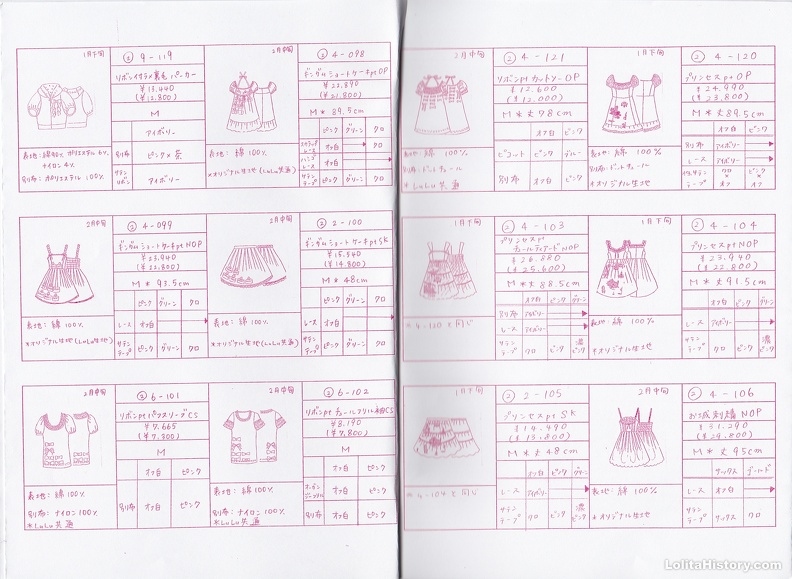 1月下旬
② 9-119
リボンイカラメ裏毛 パーカー
¥13,440
(¥12,800)
M
アイボリー
別布 ピンク×茶
サテンリボン アイボリー
表地: 綿90% ポリエステル6%
ナイロン4%
別布: ポリエステル 100%
2月中旬
② 4-098
ギンガムショートケーキptOP
¥22,890
(¥21,800)
M * 89.5cm
ピンク グリーン クロ
オフ白
オフ白
サテンテープ ピンク グリーン クロ
表地: 綿 100%
*オリジナル生地 (LuLu共通)
2月中旬
② 4-099
ギンガムショートケーキpt NOP
¥23,940
(¥22,800)
M * 93.5cm
ピンク グリーン クロ
レース オフ白
サテンテープ ピンク グリーン クロ
表地: 綿 100%
*オリジナル生地(LuLu共通)
2月中旬
② 2-100
ギンガムショートケーキpt SK
¥15,540
(¥14,800)
M * 48cm
ピンク グリーン クロ
レース オフ白
サテンテープ ピンク グリーン クロ
表地: 綿 100%
*オリジナル生地(LuLu共通)
2月中旬
② 6-101
リボンptパフスリーブCS
¥7,665
(¥7,300)
M
オフ白 ピンク
別布 オフ白 ピンク
表地: 綿 100%
別布: ナイロン 100%
*LuLu共通
2月中旬
② 6-102
リボンpt チュールフリル袖CS
¥8,190
(¥7,800)
M
オフ白 ピンク
オフ白 ピンク
別布 オフ白 ピンク
表地: 綿 100%
別布: ナイロン 100%
*LuLu共通
2月中旬
② 4-121
リボンptカットソーOP
¥12,600
(¥12,000)
M * 丈98cm
オフ白 ピンク
ピコット ピンク ブルー
別布 オフ白 ピンク
表地: 綿 100%
別布: ドットチュール
*LuLu共通
1月下旬
② 4-120
プリンセスpt OP
¥24,990
(¥23,800)
M * 丈89.5cm
オフ白 ピンク
別布 アイボリー
レース アイボリー
表地: 綿 100%
別布: ドットチュール
*オリジナル生地
1月下旬
② 4-103
プリンセスpt
チュールティアードNOP
¥26,880
(¥25,600)
M * 丈88.5cm
オフ白 ピンク グリーン
別布 アイボリー
レース アイボリー
サテンテープ クロ ピンク 濃ピンク
*4-120と同じ
1月下旬
② 4-104
プリンセスpt NOP
¥23,940
(¥22,800)
M * 丈91.5cm
オフ白 ピンク グリーン
レース アイボリー
サテンテープ クロ ピンク 濃ピンク
表地: 綿 100%
*オリジナル生地
1月下旬
② 2-105
プリンセスpt SK
¥14,490
(¥13,800)
M * 丈48cm
オフ白 ピンク グリーン
レース アイボリー
サテンテープ クロ ピンク 濃ピンク
*4-104と同じ
2月中旬
② 4-106
お城刺繍 NOP
¥31,290
(¥29,800)
M * 丈95cm
サックス ゴールド
レース オフ白
サテンテープ サックス クロ
表地: 綿 100%
*オリジナル生地
LolitaHistory.com